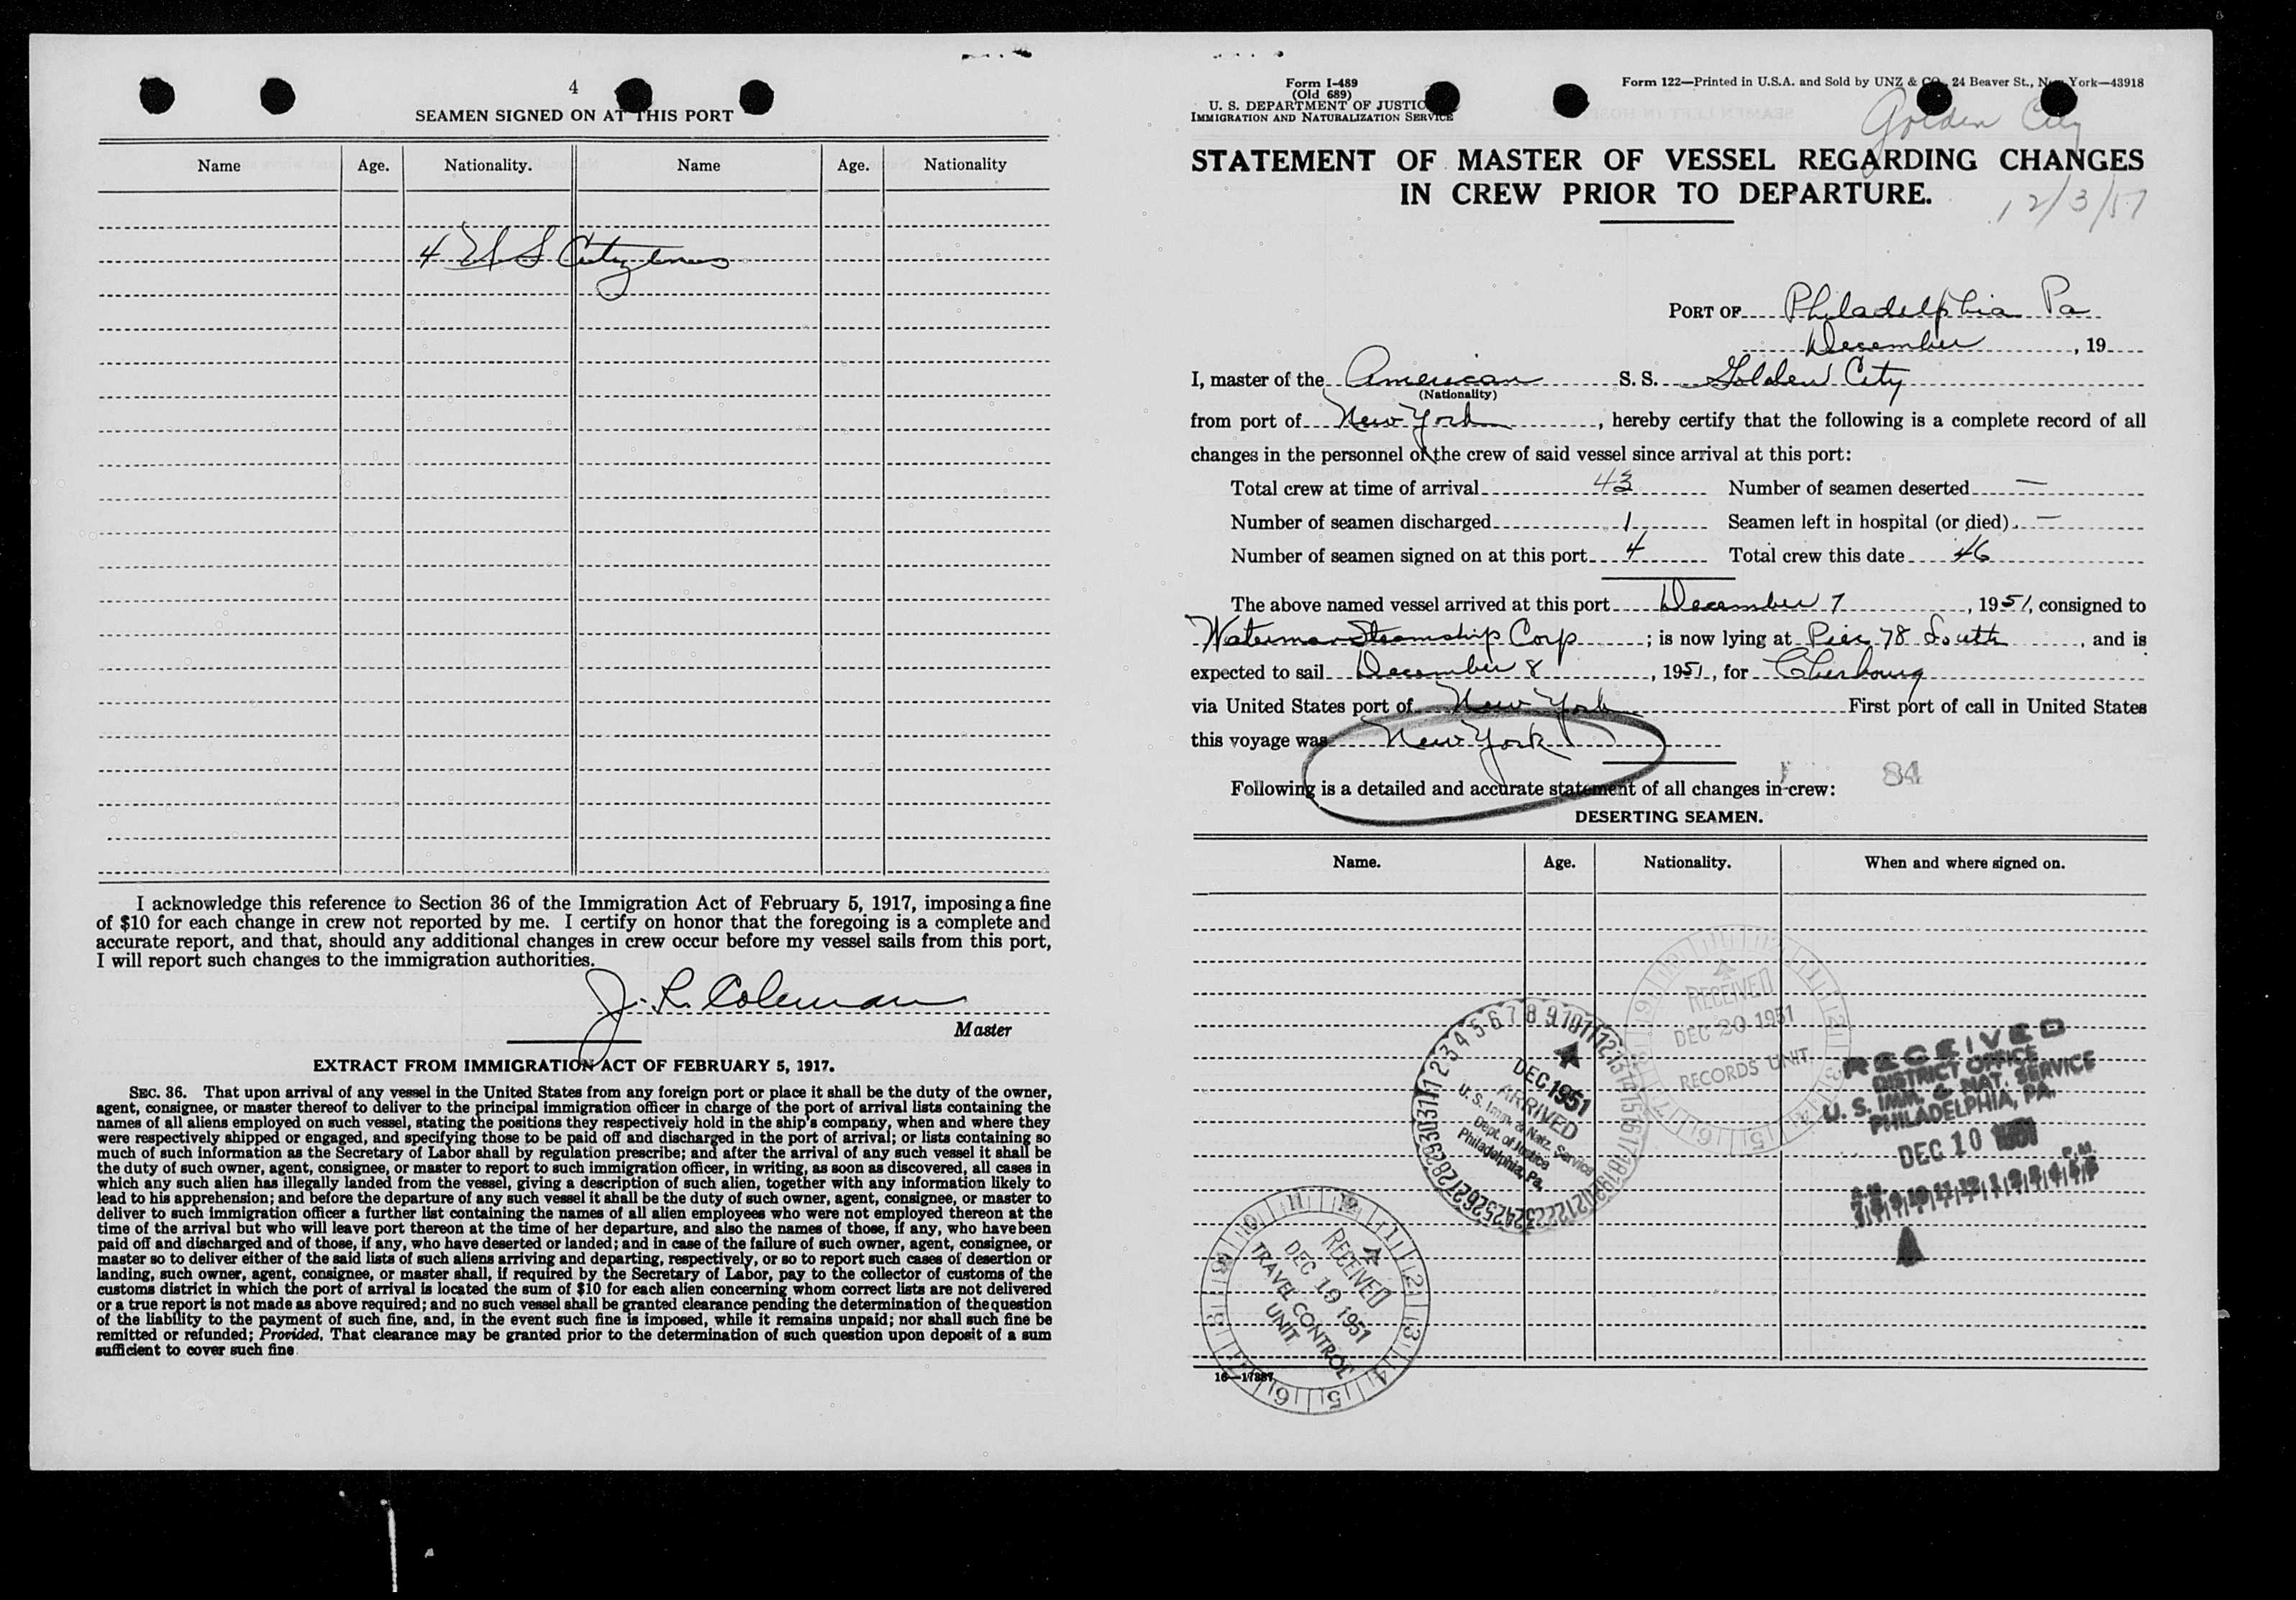 4
SEAMEN SIGNED ON AT THIS PORT
Name Age. Nationality. Name Age. Nationality
4 U S Cityzens
I acknowledge this reference to Section 36 of the Immigration Act of February 5, 1917, imposing a fine
of $10 for each change in crew not reported by me. I certify on honor that the foregoing is a complete and
accurate report, and that, should any additional changes in crew occur before my vessel sails from this port,
I will report such changes to the immigration authorities.
J. L. Coleman
Master
EXTRACT FROM IMMIGRATION ACT OF FEBRUARY 5, 1917.
SEC. 36. That upon arrival of any vessel in the United States from any foreign port or place it shall be the duty of the owner,
agent, consignee, or master thereof to deliver to the principal immigration officer in charge of the port of arrival lists containing the
names of all aliens employed on such vessel, stating the positions they respectively hold in the ship's company, when and where they
were respectively shipped or engaged, and specifying those to be paid off and discharged in the port of arrival; or lists containing so
much of such information as the Secretary of Labor shall by regulation prescribe; and after the arrival of any such vessel it shall be
the duty of such owner, agent, consignee, or master to report to such immigration officer, in writing, as soon as discovered, all cases in
which any such alien has illegally landed from the vessel, giving a description of such alien, together with any information likely to
lead to his apprehension; and before the departure of any such vessel it shall be the duty of such owner, agent, consignee, or master to
deliver to such immigration officer a further list containing the names of all alien employees who were not employed thereon at the
time of the arrival but who will leave port thereon at the time of her departure, and also the names of those, if any, who have been
paid off and discharged and of those, if any, who have deserted or landed; and in case of the failure of such owner, agent, consignee, or
master so to deliver either of the said lists of such aliens arriving and departing, respectively, or so to report such cases of desertion or
landing, such owner, agent, consignee, or master shall, if required by the Secretary of Labor, pay to the collector of customs of the
customs district in which the port of arrival is located the sum of $10 for each alien concerning whom correct lists are not delivered
or a true report is not made as above required; and no such vessel shall be granted clearance pending the determination of the question
of the liability to the payment of such fine, and, in the event such fine is imposed, while it remains unpaid; nor shall such fine be
remitted or refunded; Provided, That clearance may be granted prior to the determination of such question upon deposit of a sum
sufficient to cover such fine
Form I-489
(Old 689)
U. S. DEPARTMENT OF JUSTIC
IMMIGRATION AND NATURALIZATION SERVICE
Form 122—Printed in U.S.A. and Sold by UNZ & CO., 24 Beaver St., New York—43918
Golden City
STATEMENT OF MASTER OF VESSEL REGARDING CHANGES
IN CREW PRIOR TO DEPARTURE.
12/3/51
PORT OF Philadelphia Pa
December , 19
I, master of the American S. S. Golden City
(Nationality)
from port of New York , hereby certify that the following is a complete record of all
changes in the personnel of the crew of said vessel since arrival at this port:
Total crew at time of arrival 43 Number of seamen deserted —
Number of seamen discharged 1 Seamen left in hospital (or died) —
Number of seamen signed on at this port 4 Total crew this date 46
The above named vessel arrived at this port December 7 , 1951, consigned to
Waterman Steamship Corp ; is now lying at Pier 78 South , and is
expected to sail December 8 , 1951, for Cherbourg
via United States port of New York First port of call in United States
this voyage was New York
84
Following is a detailed and accurate statement of all changes in crew:
DESERTING SEAMEN.
Name. Age. Nationality. When and where signed on.
RECEIVED
DEC 20 1951
RECORDS UNIT
DEC 1951
ARRIVED
U. S. Imm. & Natz. Service
Dept. of Justice
Philadelphia, Pa.
RECEIVED
DISTRICT OFFICE
U. S. IMM. & NAT. SERVICE
PHILADELPHIA, PA.
DEC 10 1951
RECEIVED
DEC 19 1951
TRAVEL CONTROL
UNIT
16—17887